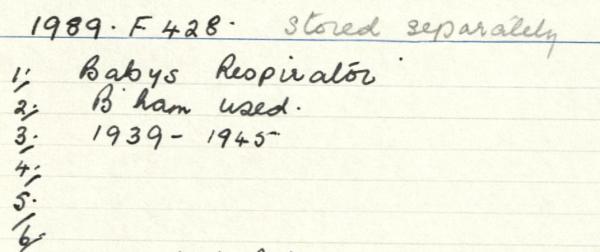 1989. F 428. Stored separately
1. Babys Respirator
2. B'ham used.
3. 1939 - 1945
4.
5.
6.